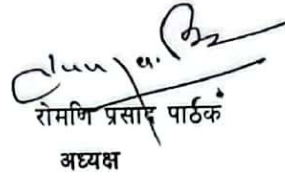 रोमणि प्रसाद पार्ठक
अध्यक्ष